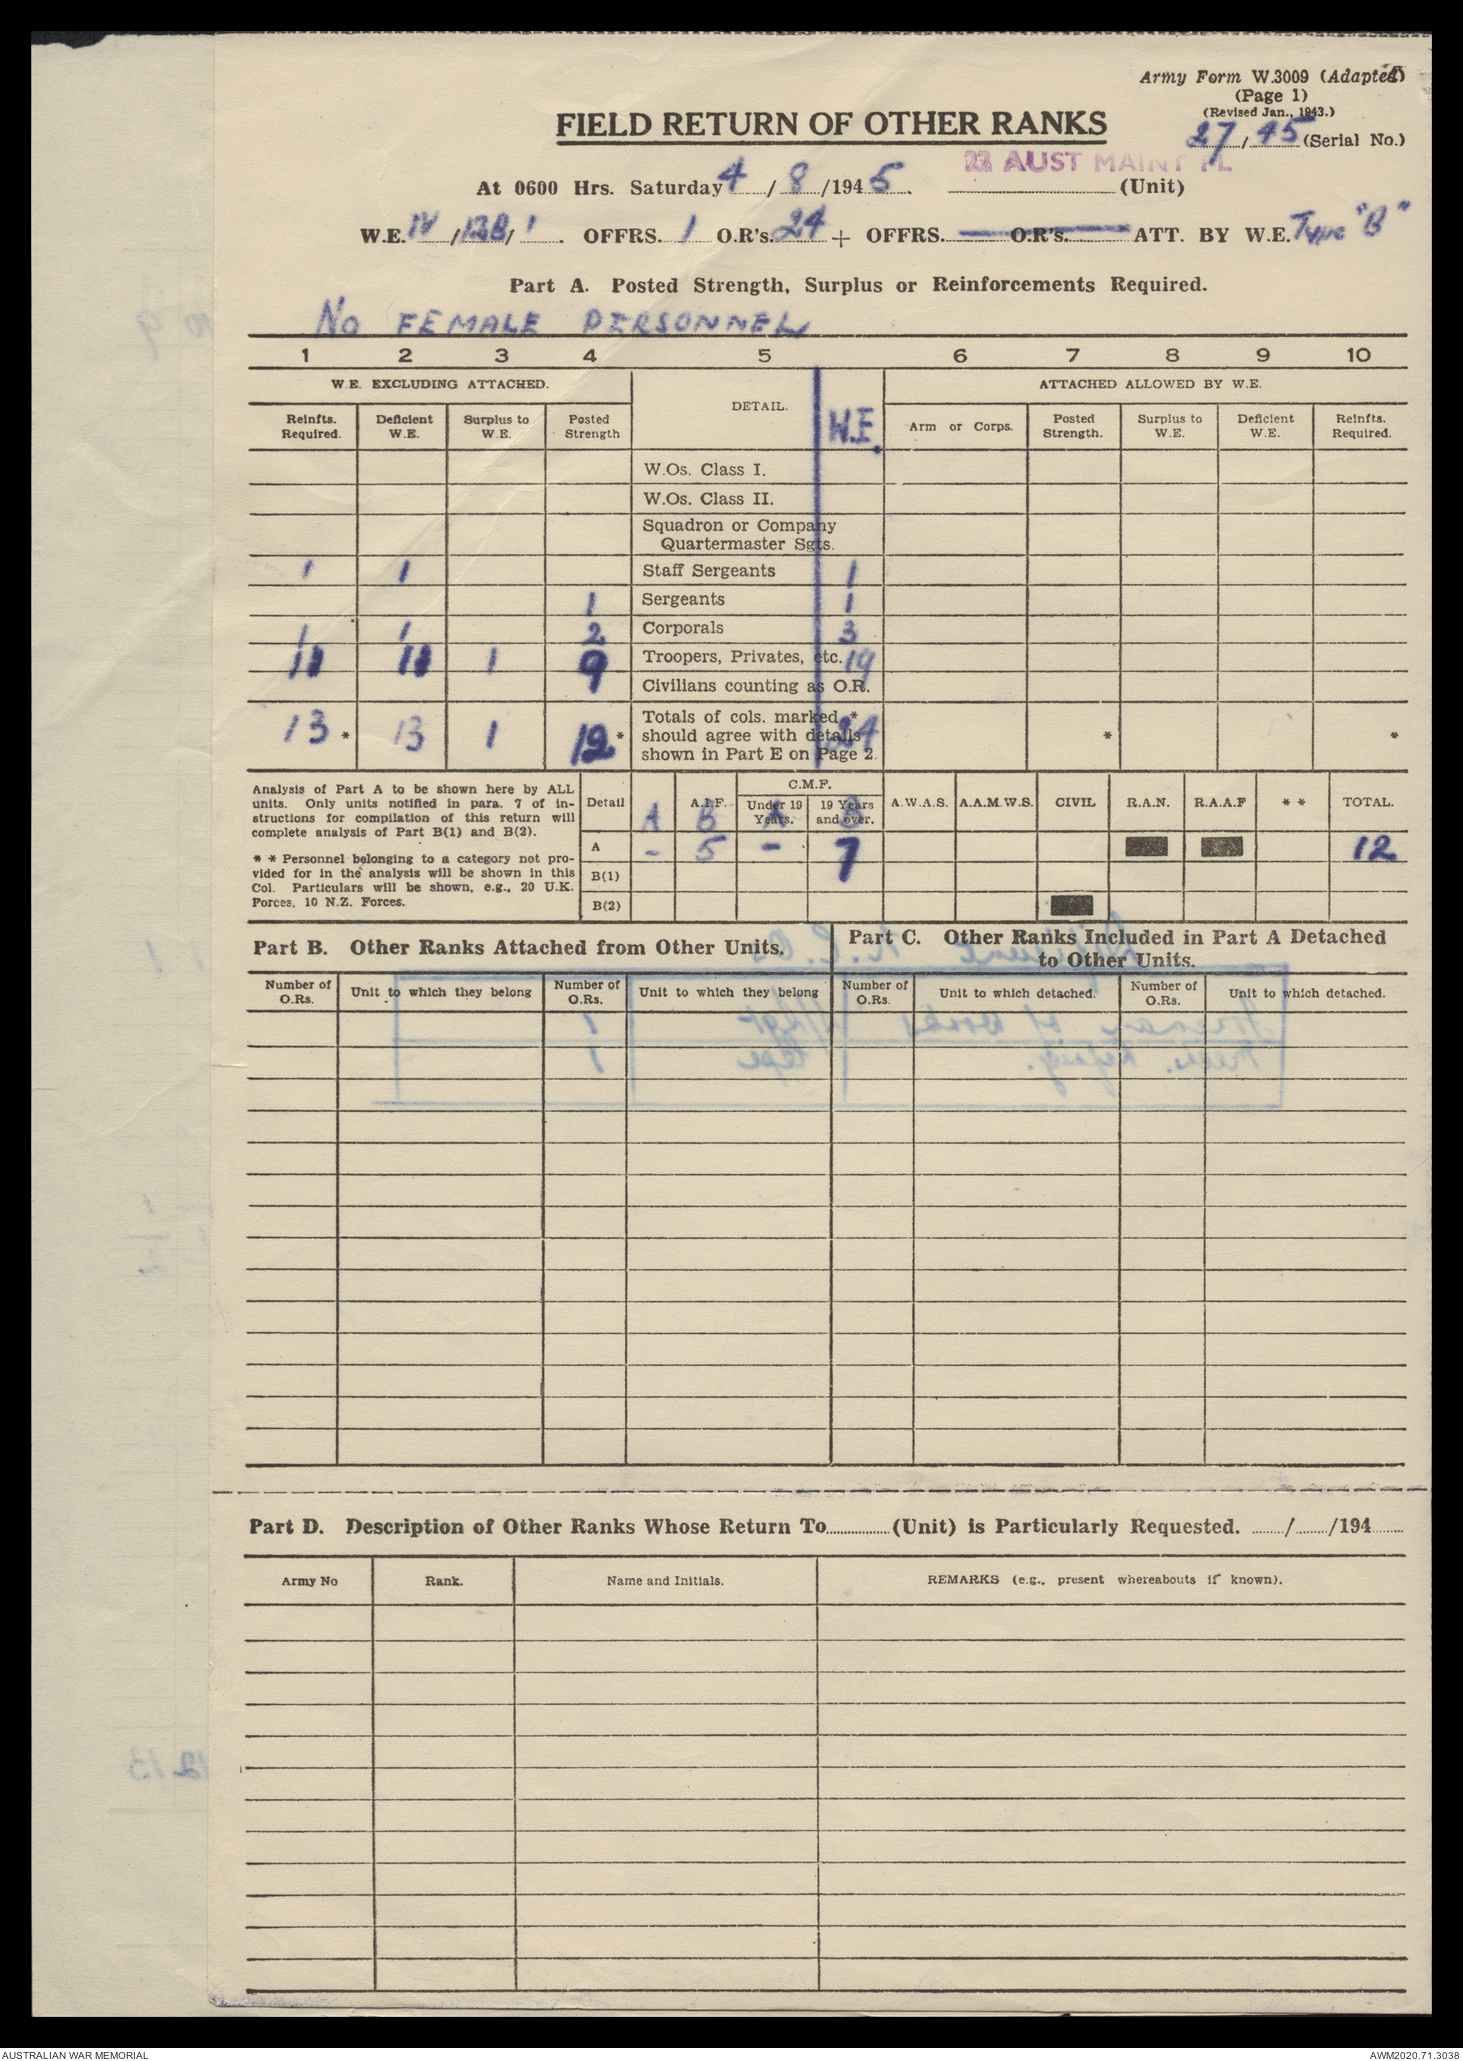 Army Form W.3009 (Adapted)
(Page 1)
(Revised Jan., 1943.)
27/45 (Serial No.)
FIELD RETURN OF OTHER RANKS
22 AUST MAINT PL
At 0600 Hrs. Saturday 4/8/1945. (Unit)
W.E. IV/12B/1. OFFRS. 1 O.R's. 24 + OFFRS. — O.R's. — ATT. BY W.E. Type "B"
Part A. Posted Strength, Surplus or Reinforcements Required.
NO FEMALE PERSONNEL
1 2 3 4 5 6 7 8 9 10
W.E. EXCLUDING ATTACHED. DETAIL. W.E. ATTACHED ALLOWED BY W.E.
Reinfts. Required. Deficient W.E. Surplus to W.E. Posted Strength Arm or Corps. Posted Strength. Surplus to W.E. Deficient W.E. Reinfts. Required.
W.Os. Class I.
W.Os. Class II.
Squadron or Company
Quartermaster Sgts.
1 1 Staff Sergeants 1
1 Sergeants 1
1 1 2 Corporals 3
11 11 1 9 Troopers, Privates, etc. 19
Civilians counting as O.R.
13 * 13 1 12 * Totals of cols. marked * should agree with details shown in Part E on Page 2. 24 * *
Analysis of Part A to be shown here by ALL
units. Only units notified in para. 7 of in-
structions for compilation of this return will
complete analysis of Part B(1) and B(2).
* * Personnel belonging to a category not pro-
vided for in the analysis will be shown in this
Col. Particulars will be shown, e.g., 20 U.K.
Forces, 10 N.Z. Forces.
Detail A.I.F. C.M.F. Under 19 Years. 19 Years and over. A.W.A.S. A.A.M.W.S. CIVIL R.A.N. R.A.A.F * * TOTAL.
A B A B
A - 5 - 7 12
B(1)
B(2)
Part B. Other Ranks Attached from Other Units.
Part C. Other Ranks Included in Part A Detached
to Other Units.
Number of O.Rs. Unit to which they belong Number of O.Rs. Unit to which they belong Number of O.Rs. Unit to which detached. Number of O.Rs. Unit to which detached.
Part D. Description of Other Ranks Whose Return To............(Unit) is Particularly Requested. ....../....../194......
Army No Rank. Name and Initials. REMARKS (e.g., present whereabouts if known).
AUSTRALIAN WAR MEMORIAL AWM2020.71.3038